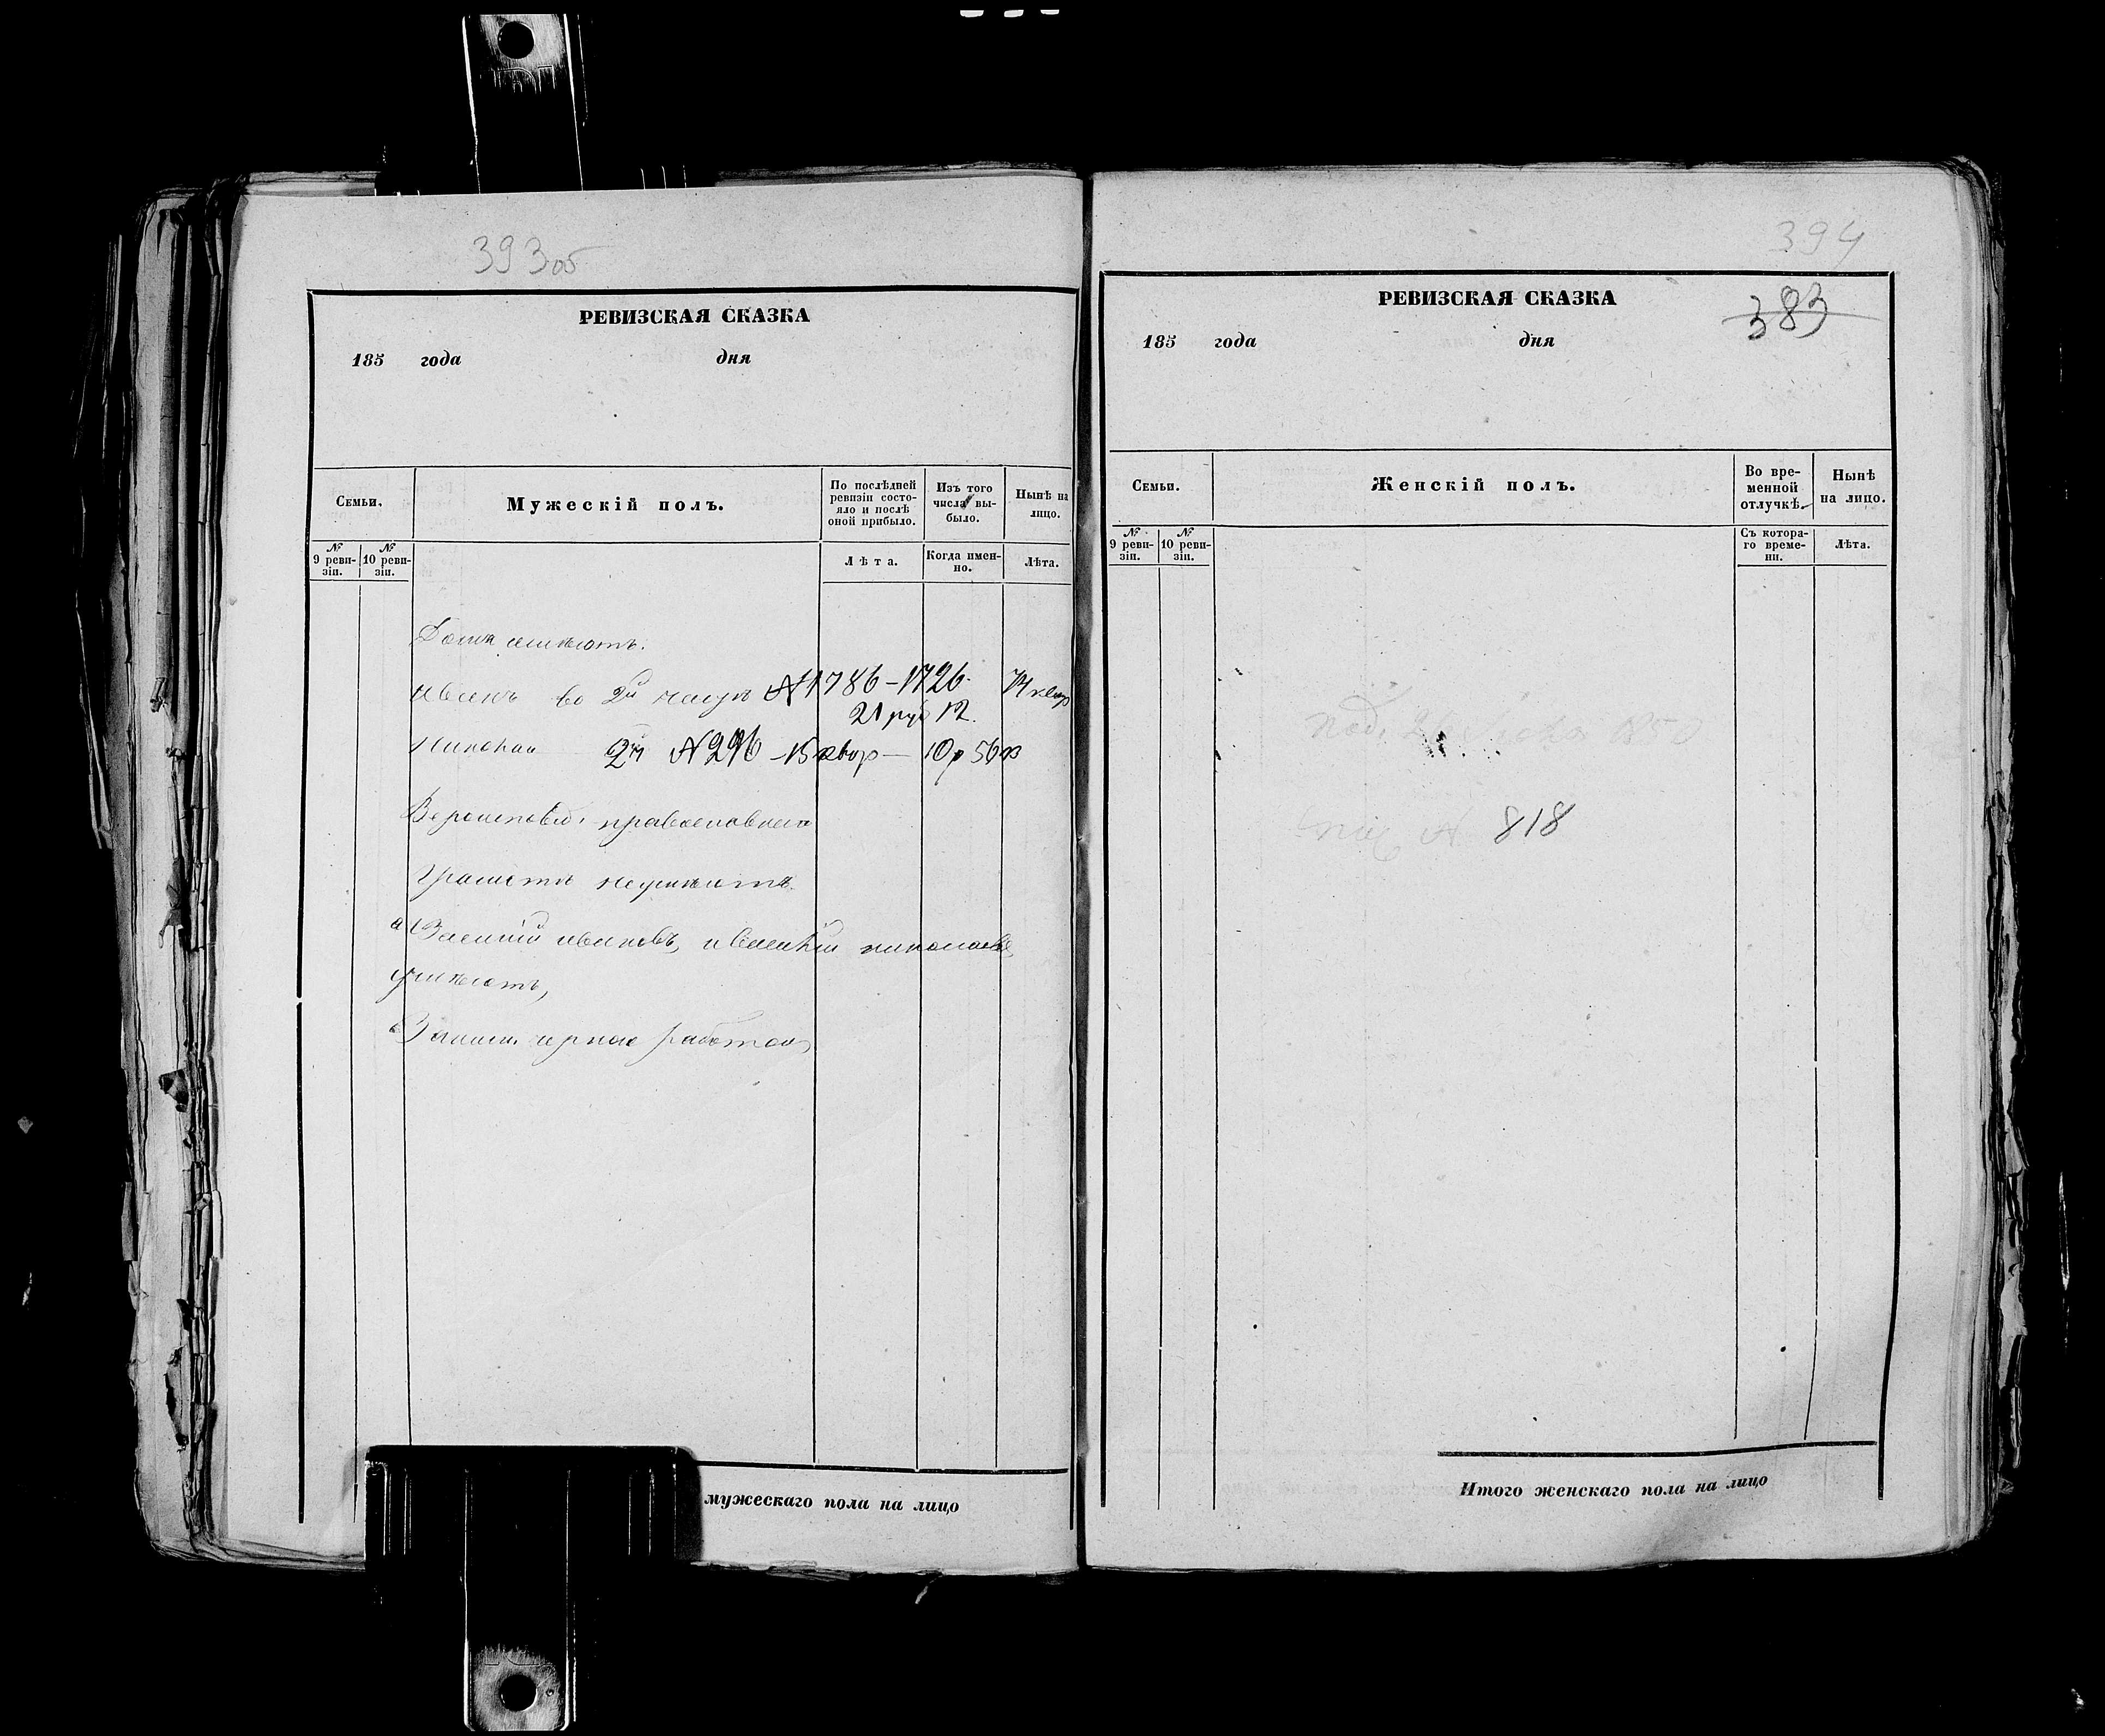 393об
РЕВИЗСКАЯ СКАЗКА
185 года дня
Семьи.
Мужескій полъ.
По послѣдней ревизіи состояло и послѣ оной прибыло.
Изъ того числа выбыло.
Нынѣ на лицо.
№ 9 ревизіи.
№ 10 ревизіи.
Лѣта.
Когда именно.
Лѣта.
Дома имѣютъ.
Иванъ во 2й части №1786-1726.
21 руб 12.
Николай 2й №296 - 15 - 10р 56к
православнаго
Грамотѣ неумѣютъ.
а Василій Ивановъ, и Николаевъ
умѣютъ,
работою
мужескаго пола на лицо
394
383
РЕВИЗСКАЯ СКАЗКА
185 года дня
Семьи.
Женскій полъ.
Во временной отлучкѣ.
Нынѣ на лицо.
№ 9 ревизіи.
№ 10 ревизіи.
Съ котораго времени.
Лѣта.
Под. 26 1850
№ 818
Итого женскаго пола на лицо